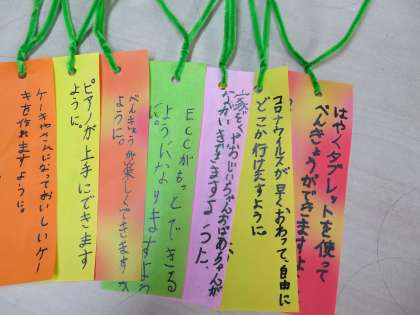 はやくタブレットを使って
べんきょうができますよ
コロナウイルスが早くおわって、自由に
どこか行けますように
家ぞくやおじいちゃんおばあちゃんが
ながいきできますような
ECCがもっとできる
ようになりますよう
に。
べんきょうが楽しくできますか
ように。
ピアノが上手にできます
ように。
ケーキやさんになっておいしいケー
キを作れますように。